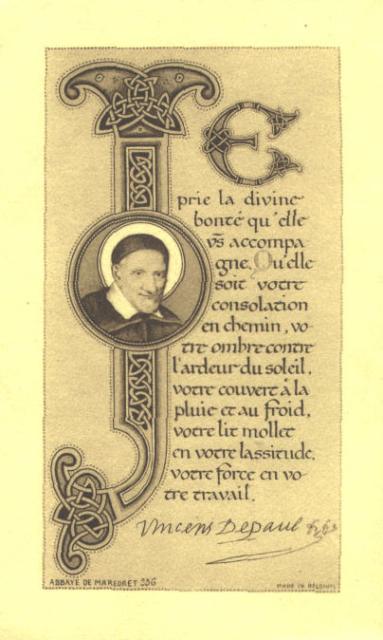 JE
prie la divine
bonté qu'elle
vs accompa
gne. Qu'elle
soit votre
consolation
en chemin, vo-
tre ombre contre
l'ardeur du soleil,
votre couvert à la
pluie et au froid,
votre lit mollet
en votre lassitude,
votre force en vo-
tre travail.
Vincens Depaul
ABBAYE DE MAREDRET 336
MADE IN BELGIUM